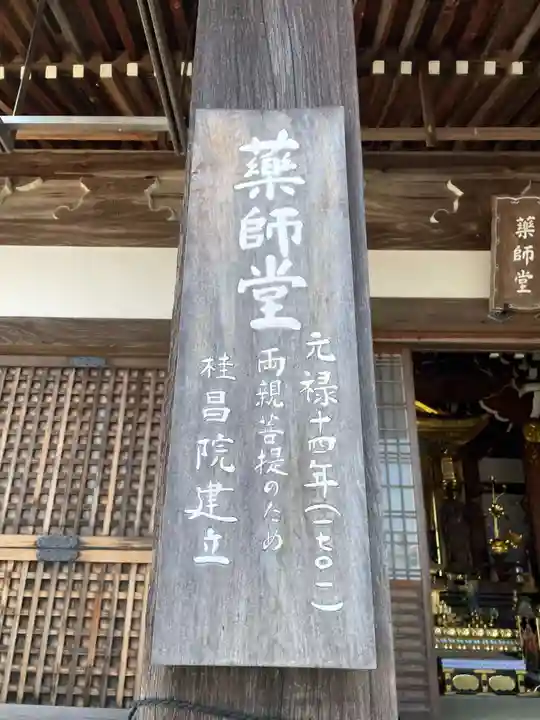 藥師堂
元禄十四年(一七〇一)
両親菩提のため
桂昌院建立
藥師堂